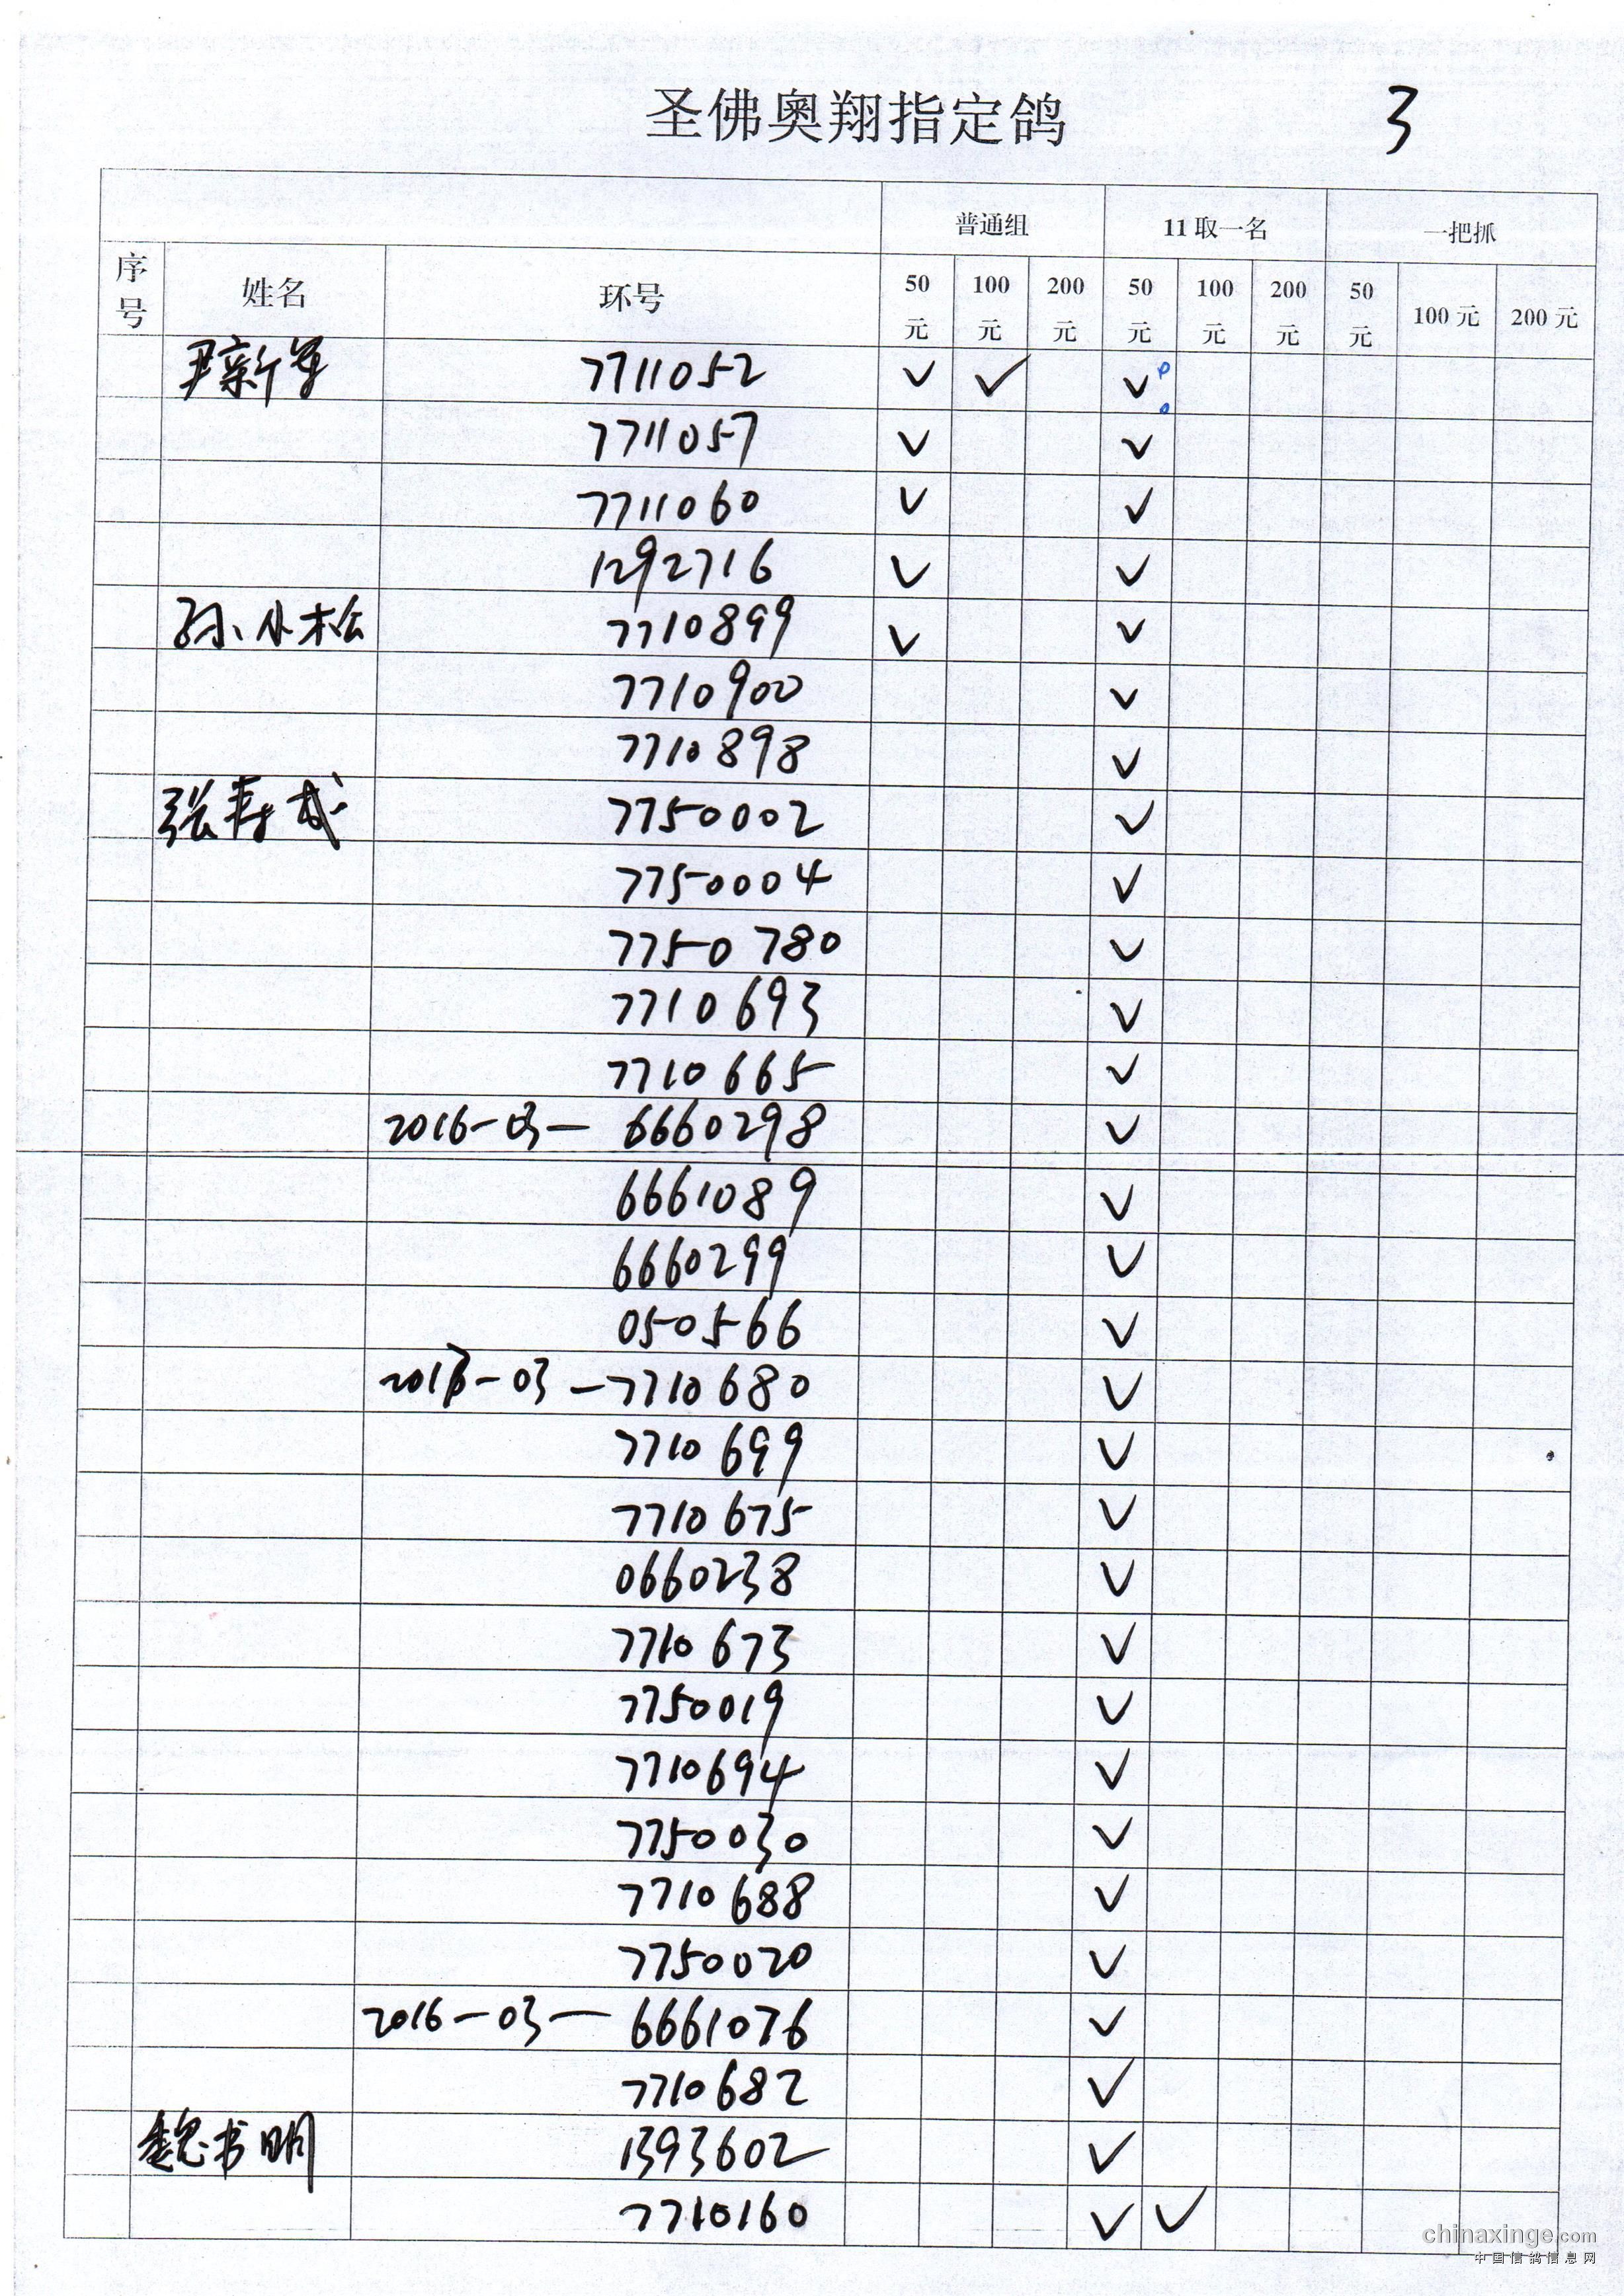 圣佛奥翔指定鸽 3
普通组 11取一名 一把抓
序号 姓名 环号 50元 100元 200元 50元 100元 200元 50元 100元 200元
尹新军 7711052 ✓ ✓ ✓
7711057 ✓ ✓
7711060 ✓ ✓
1292716 ✓ ✓
孙小松 7710899 ✓ ✓
7710900 ✓
7710898 ✓
张寿成 7750002 ✓
7750004 ✓
7750780 ✓
7710693 ✓
7710665 ✓
2016-03-6660298 ✓
6661089 ✓
6660299 ✓
050566 ✓
-03-7710680 ✓
7710699 ✓
7710675 ✓
0660238 ✓
7710673 ✓
7750019 ✓
7710694 ✓
7750030 ✓
7710688 ✓
7750020 ✓
2016-03-6661076 ✓
7710682 ✓
魏书明 1393602 ✓
7710160 ✓ ✓
chinaxinge.com
中国信鸽信息网